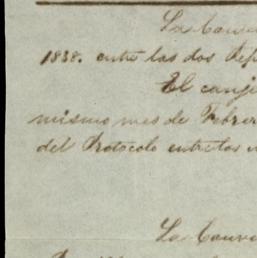 La Conve
1838. entre las dos Rep
El canje
mismo mes de Febrer
del Protocolo entre los
La Conve